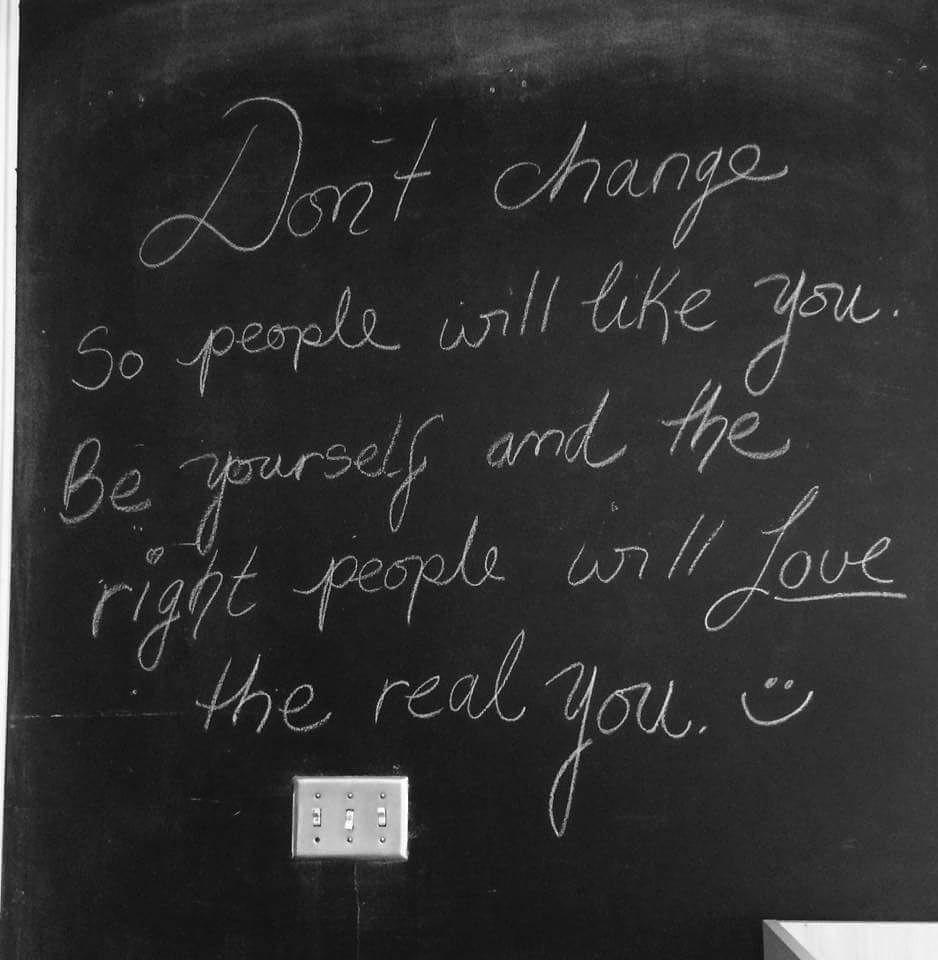 Don't change
So people will like you.
Be yourself and the
right people will Love
the real you. ☺